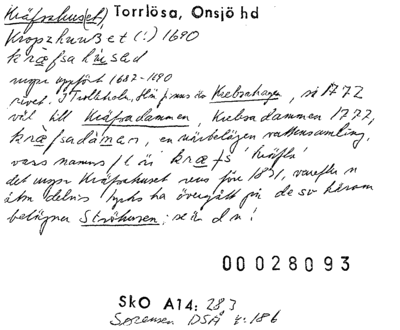 Kräfsahus(et) Torrlösa, Onsjö hd
Kropzhuuset (!) 1690
kræfsa
uppfört 1682-1690
rivet. I Trolleholm, finns Krebshagen, 1772
väl till Kräfsadammen, Krebsadammen 1772,
kræfsadámar, en närbelägen vattensamling,
vars namns f.l. är kræfs 'kräfta'
det Kräfsahuset revs före 1831, varefter n
delvis tycks ha övergått på de sv härom
belägna Ströhusen; se d n!
00028093
SkO A14: 283
Sørensen DSÅ s. 186